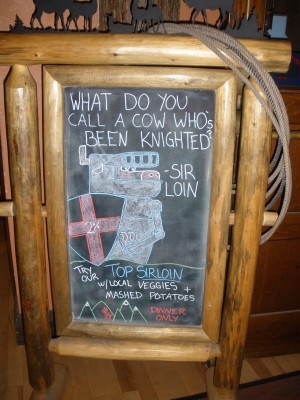 WHAT DO YOU
CALL A COW WHO'S
BEEN KNIGHTED?
-SIR
LOIN
TRY
OUR
TOP SIRLOIN
W/LOCAL VEGGIES +
MASHED POTATOES
DINNER
ONLY